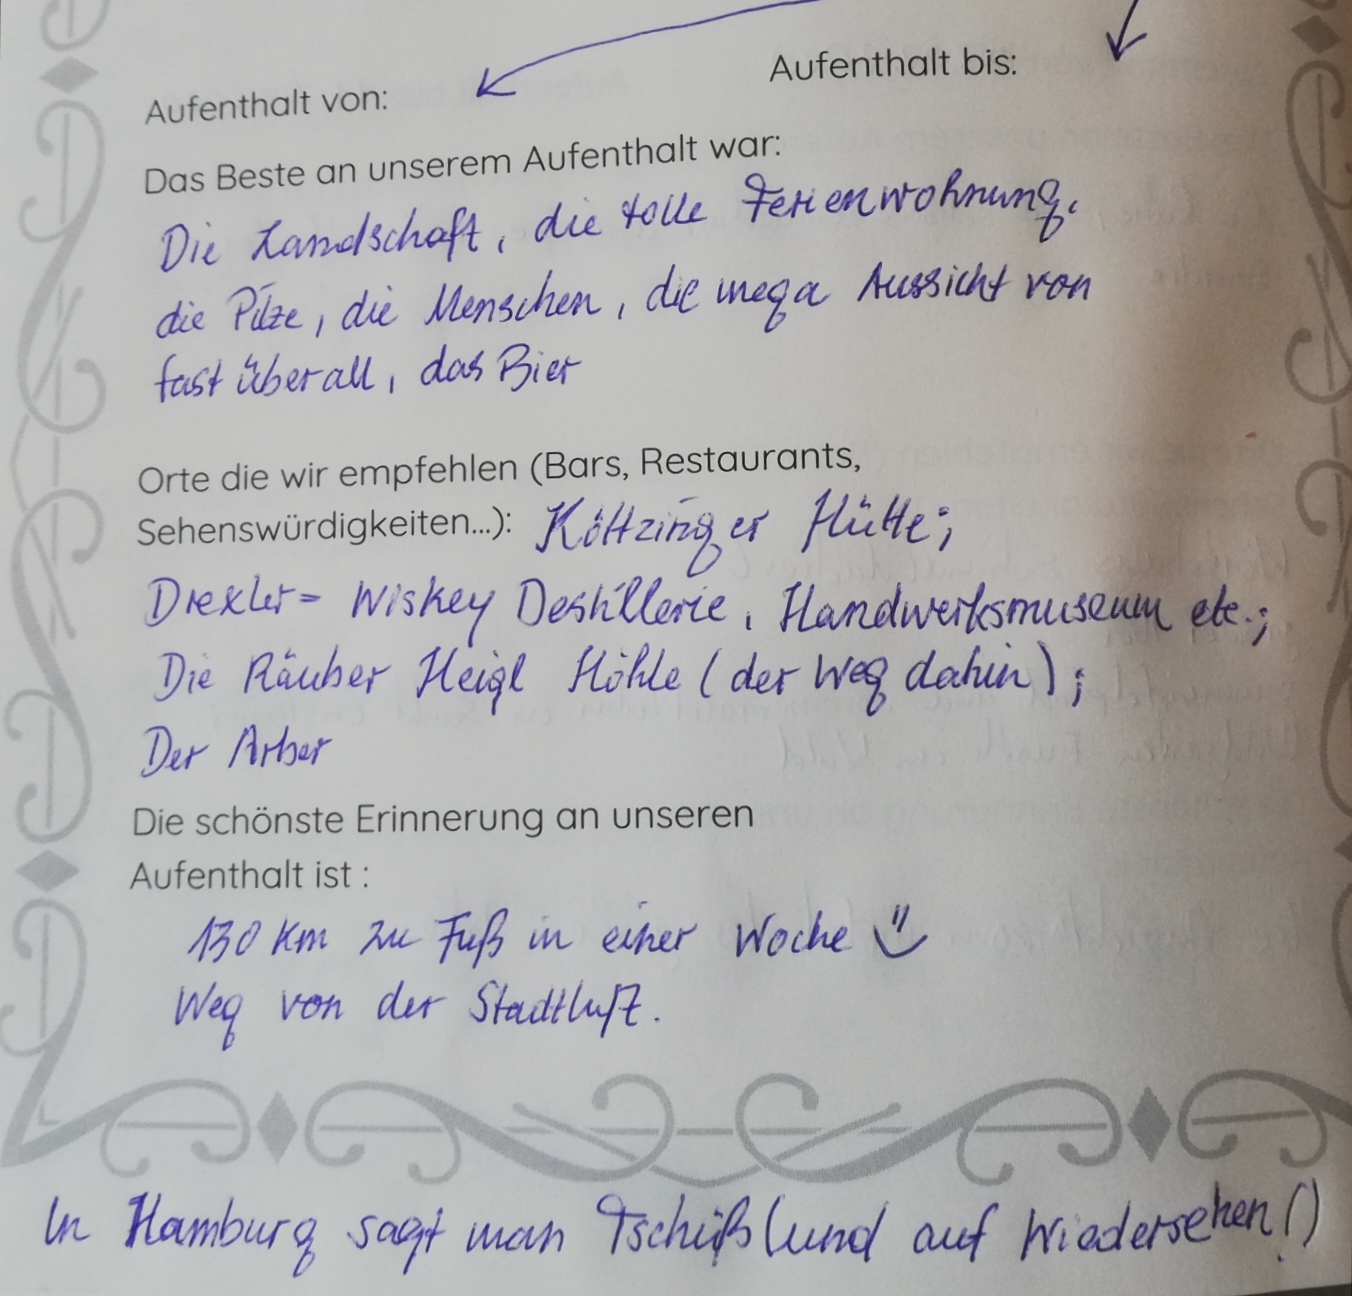 Aufenthalt von: Aufenthalt bis:
Das Beste an unserem Aufenthalt war:
Die Landschaft, die tolle Ferienwohnung,
die Pilze, die Menschen, die mega Aussicht von
fast überall, das Bier
Orte die wir empfehlen (Bars, Restaurants,
Sehenswürdigkeiten...): Köttzinger Hütte;
Drexler- Wiskey Destillerie, Handwerksmuseum etc.;
Die Räuber Heigl Höhle (der Weg dahin);
Der Arber
Die schönste Erinnerung an unseren
Aufenthalt ist :
130 Km zu Fuß in einer Woche
Weg von der Stadtluft.
In Hamburg sagt man Tschüß (und auf Wiedersehen!)